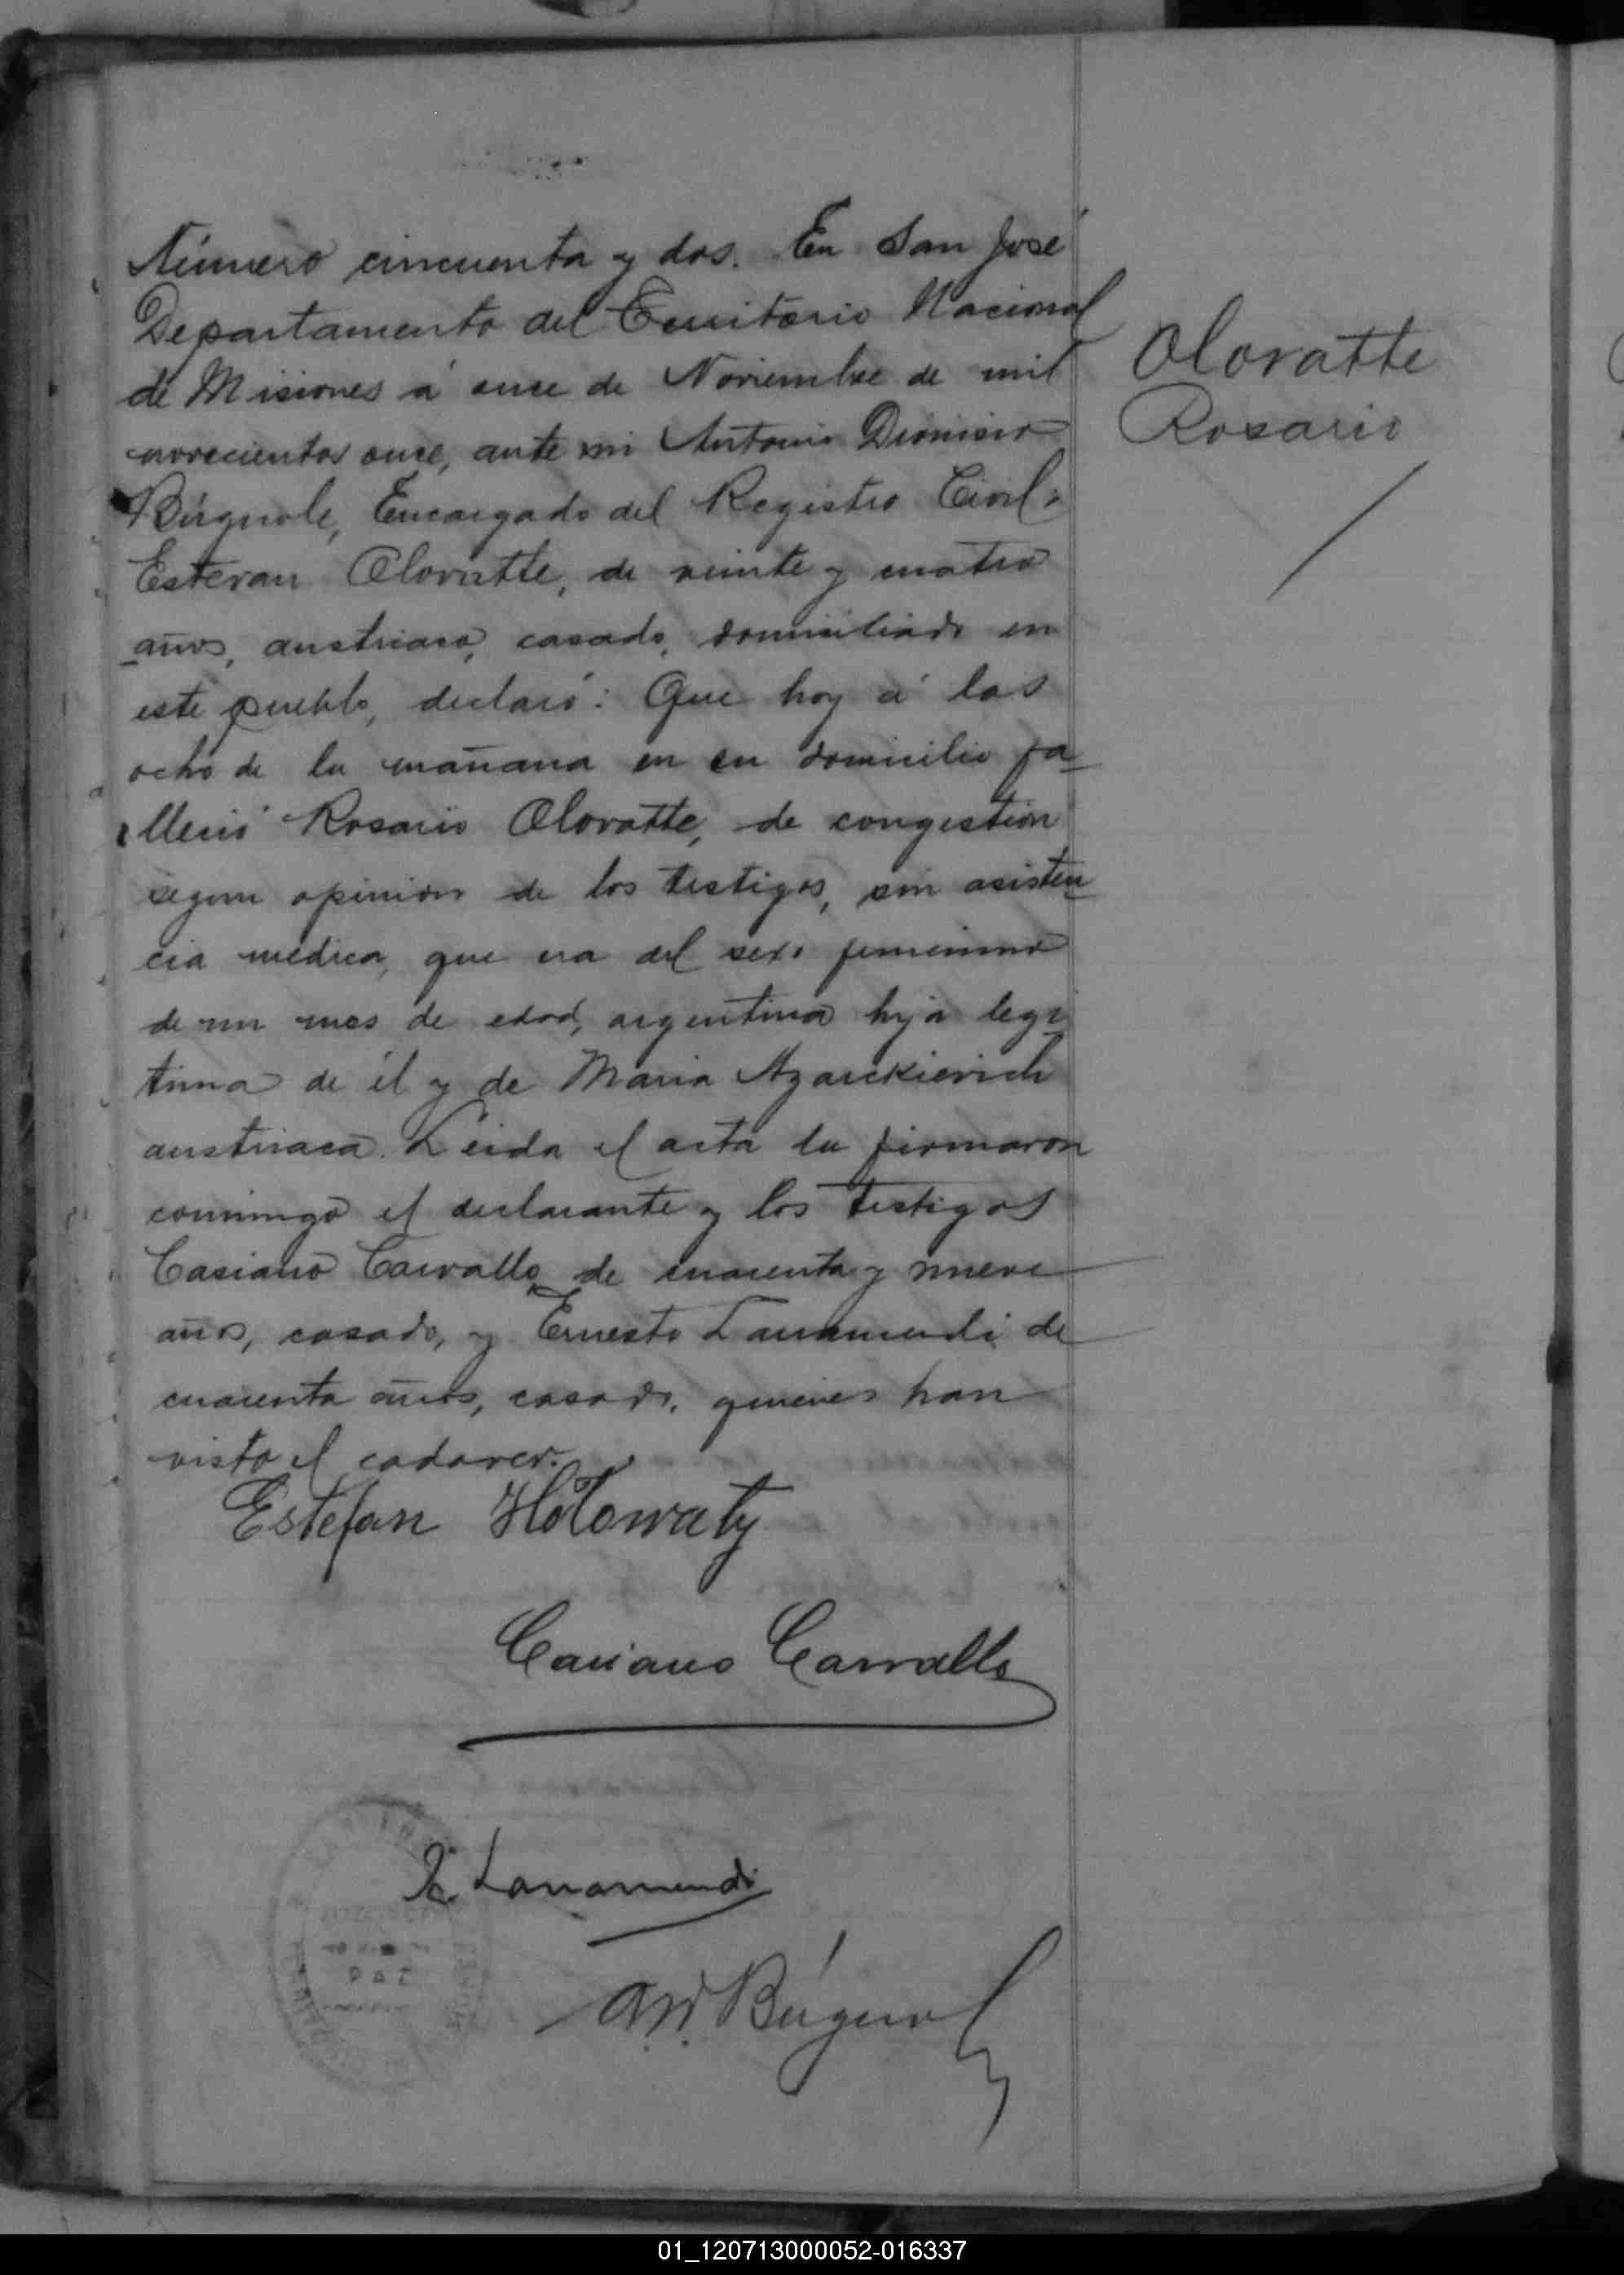 Número cincuenta y dos. En San José
Departamento del Territorio Nacional
de Misiones á once de Noviembre de mil
novecientos once, ante mi Antonio Dionisio
Búgnole, Encargado del Registro Civil:
Estevan Olovatte, de veinte y cuatro
años, austriaco, casado, domiciliado en
este pueblo, declaró: Que hoy á las
ocho de la mañana en su domicilio fa
lleció Rosario Olovatte, de congestión
segun opinion de los testigos, sin asisten
cia médica, que era del sexo femenino
de un mes de edad, argentina hija legi
tima de él y de Maria Azarckievich
austriaca. Leida el acta la firmaron
conmigo el declarante y los testigos
Casiano Carvallo de cuarenta y nueve
años, casado, y Ernesto Larramendi de
cuarenta años, casado, quienes han
visto el cadaver.
Olovatte
Rosario
Estefan Hołowaty
Casiano Carvallo
Larramendi
Búgnol
PAZ
01_120713000052-016337